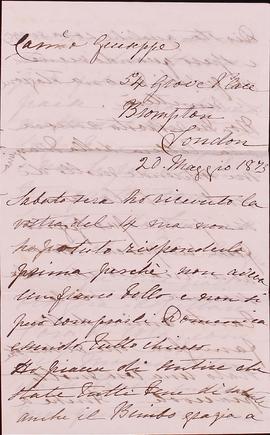 Caro Giuseppe
54 Grove Place
Brompton
London
20 Maggio 187
Sabato sera ho ricevuto la
vostra del 4 ma non
ho potuto rispondervi
prima perché non aveva
un francobollo e non si
può comprarli Domenica
essendo tutto chiuso.
Ho piacere di sentire che
state tutti bene di
anche il Bimbo grazie a